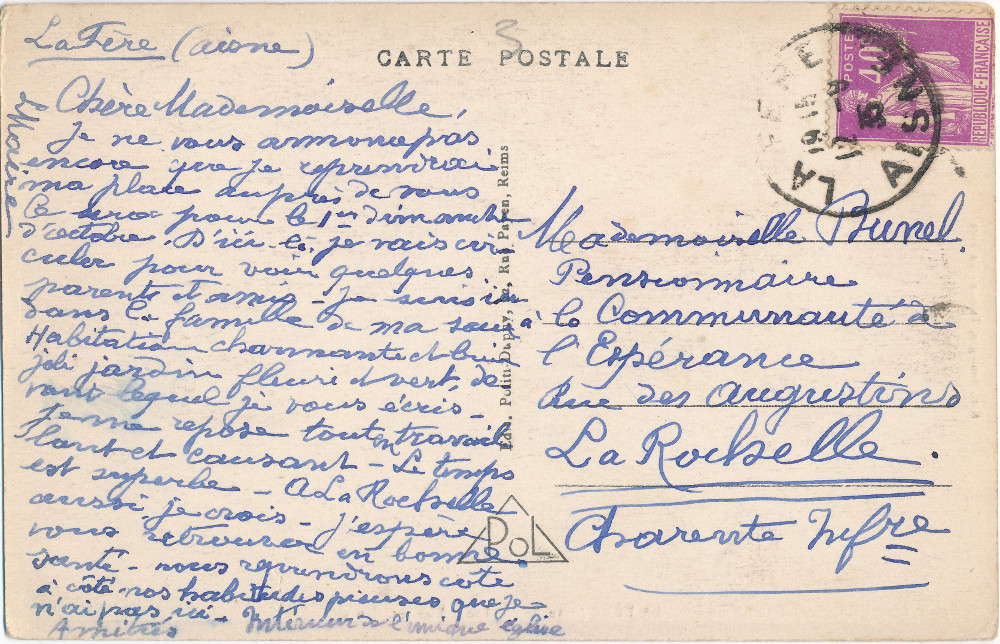 La Fère (aisne)
CARTE POSTALE
3
POSTES
40c
REPUBLIQUE-FRANÇAISE
LA FERE
AISNE
Chère Mademoiselle,
Je ne vous annonce pas
encore que je reprendrai
ma place auprès de vous
Ce sera pour le 1er dimanche
d'octobre. D'ici là je vais cir
culer pour voir quelques
parents et amis - Je suis ici
dans la famille de ma sœur
Habitation charmante et
joli jardin fleuri et vert de
vant lequel je vous écris -
Je me repose tout en travail
lant et causant - Le temps
est superbe - A La Rochelle
aussi je crois - J'espère
vous retrouver en bonne
santé - nous reprendrons côte
à côte nos habitudes pieuses que je
n'ai pas ici - Intérieur de l'unique église
Amitiés
LMaire
Edit. Politi-Dupuy, Rue Reims
PoL
Mademoiselle Brunel
Pensionnaire
à la Communauté de
l'Espérance
Rue des Augustins
La Rochelle.
Charente Infre